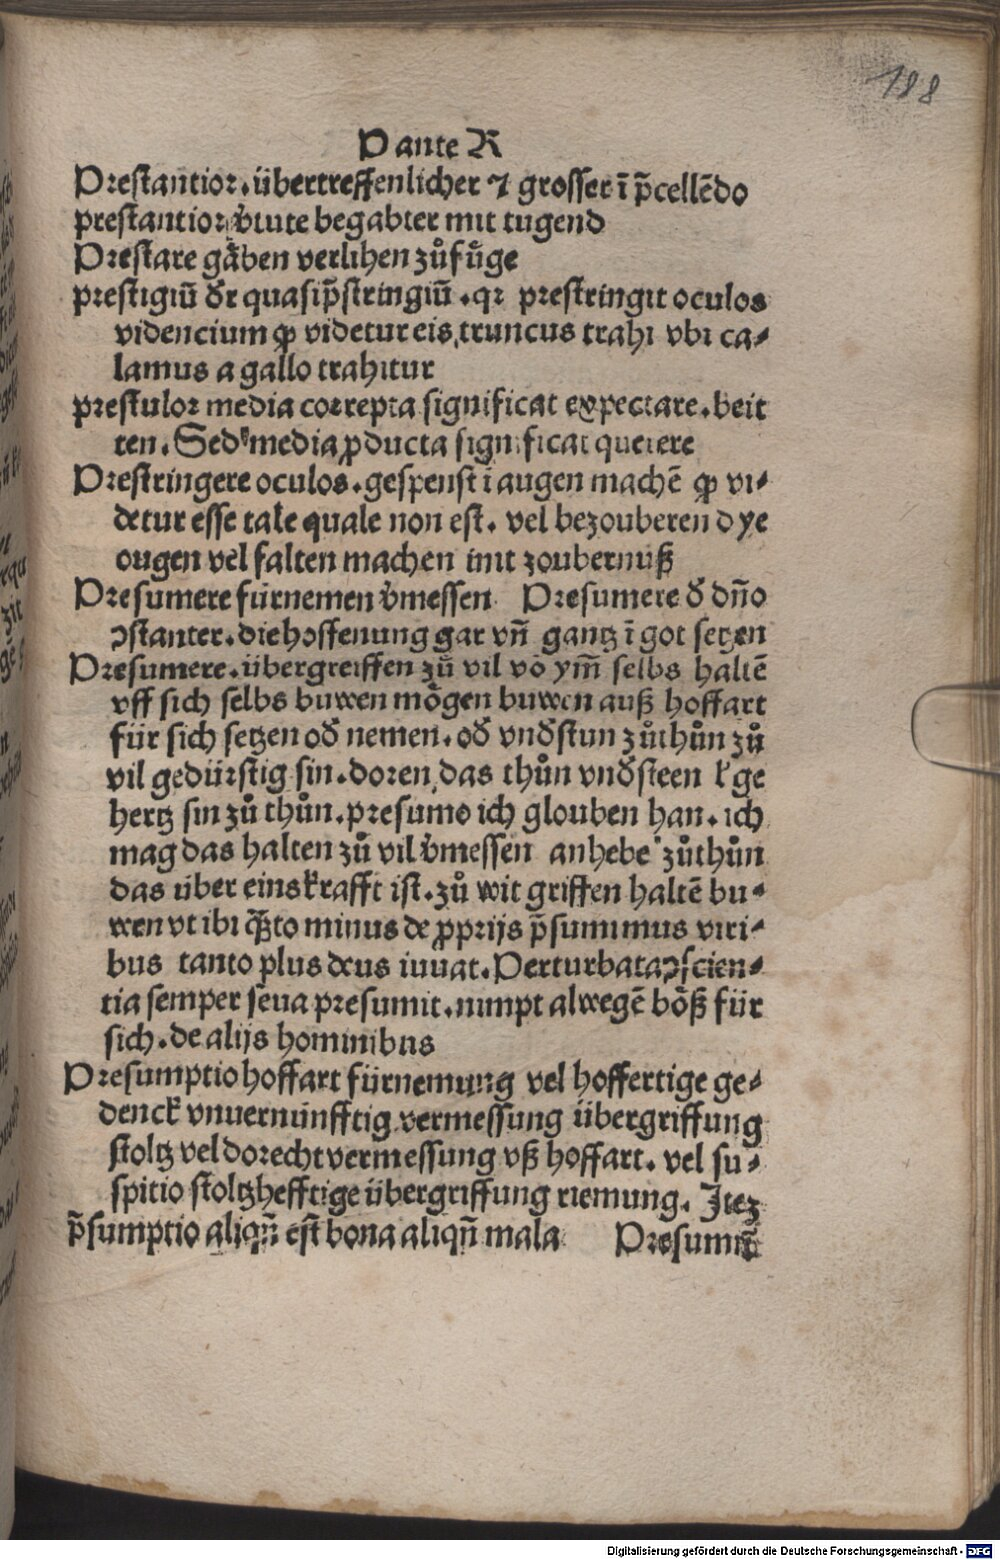 188
P ante R
Prestantior. übertreffenlicher ⁊ grosser ī p̄cellēdo
prestantior v̓tute begabter mit tugend
Prestare gāben verlihen zůfůge
prestigiū dr̄ quasi p̄stringiū. qꝛ prestringit oculos
videncium ꝙ videtur eis truncus trahi vbi ca⸗
lamus a gallo trahitur
prestulor media correpta significat expectare. beit
ten. Sed media ꝓducta significat querere
Prestringere oculos. gespenst ī augen machē ꝙ vi⸗
detur esse tale quale non est. vel bezouberen dye
ougen vel falten machen mit zoubernuß
Presumere fürnemen v̓messen Presumere đ dn̄o
ꝯstanter. die hoffenung gar vn̄ gantz ī got setzen
Presumere. übergreiffen zů vil vō ym̄ selbs haltē
vff sich selbs buwen mögen buwen auß hoffart
für sich setzen ođ nemen. ođ vnđstun zůthůn zů
vil gedürstig sin. doren das thůn vnđsteen ge
hertz sin zů thůn. presumo ich glouben han. ich
mag das halten zů vil v̓messen anhebe zůthůn
das über eins krafft ist. zů wit griffen haltē bu⸗
wen vt ibi q̄̄to minus de ꝓprijs p̄sumimus viri⸗
bus tanto plus deus iuuat. Perturbata ꝯscien⸗
tia semper seua presumit. nimpt alwegē böß für
sich. de alijs hominibus
Presumptio hoffart fürnemung vel hoffertige ge⸗
denck vnuernünfftig vermessung übergriffung
stoltz vel dorecht vermessung vß hoffart. vel su⸗
spitio stoltzhefftige übergriffung niemung. Iteꝫ
p̄sumptio aliqn̄ est bona aliqn̄ mala Presumit
Digitalisierung gefördert durch die Deutsche Forschungsgemeinschaft - DFG